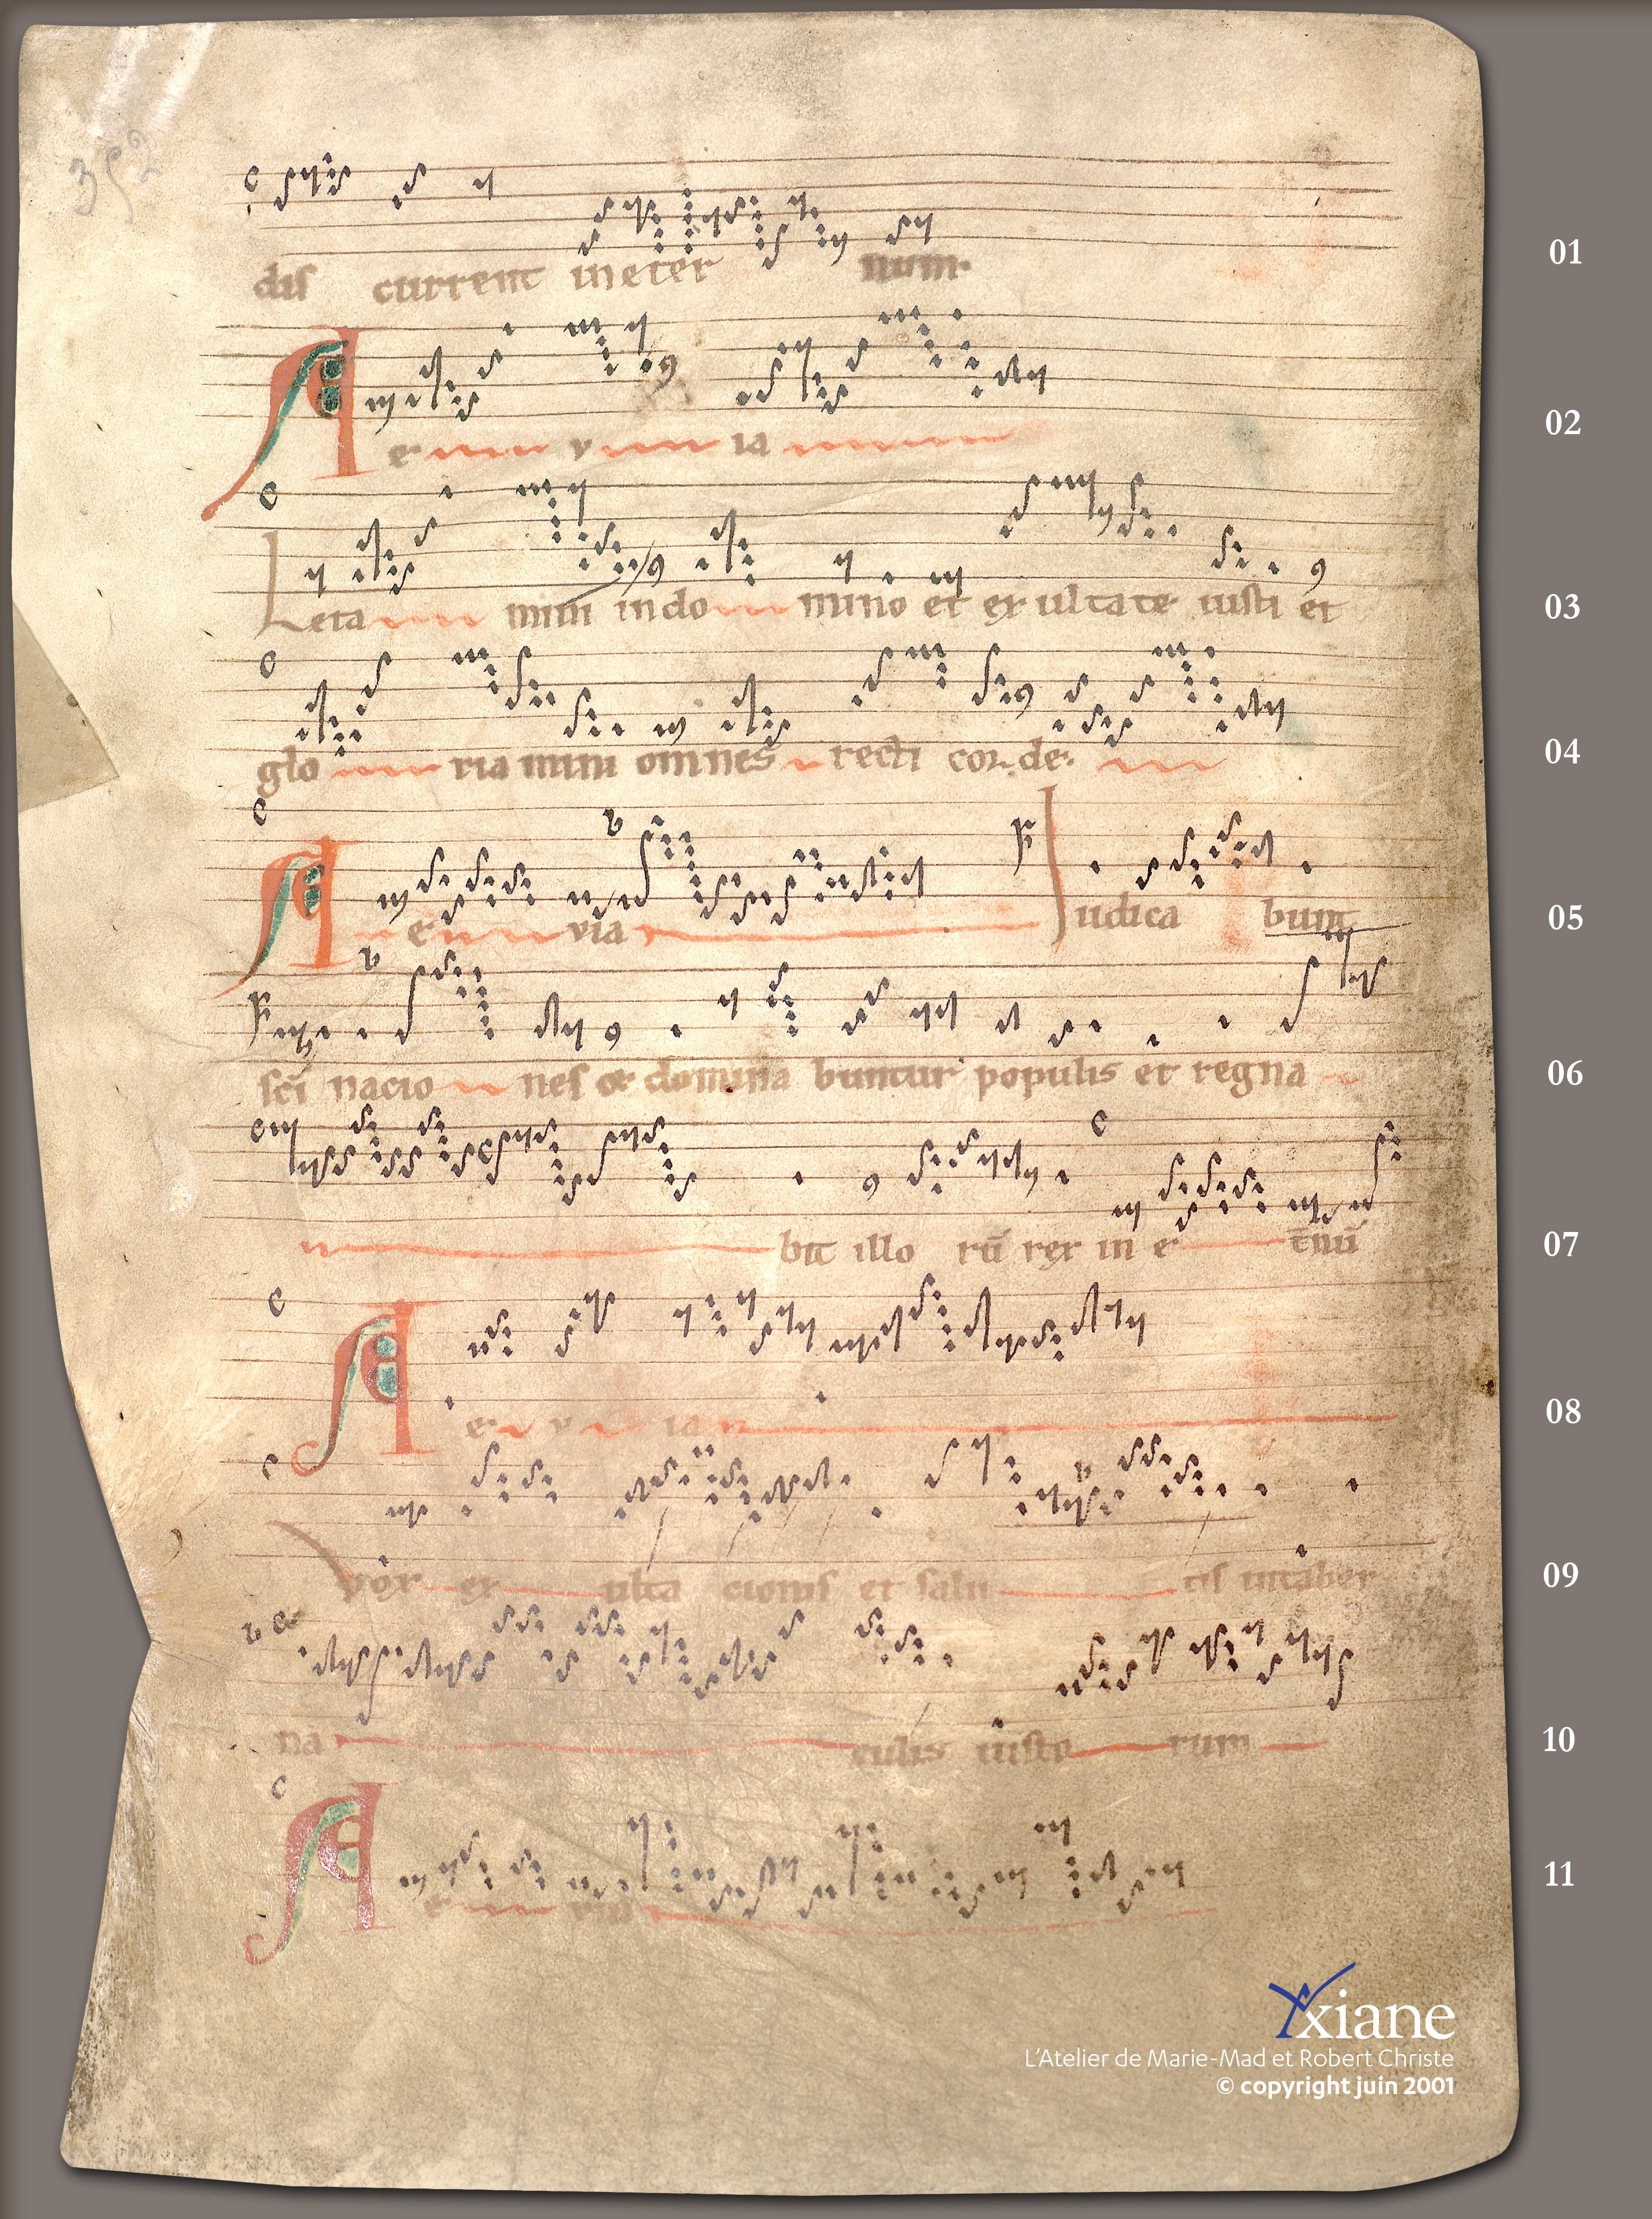 352
dis current ineter num. 01
A e v ia 02
Leta mini indo mino et exultate iusti et 03
glo ria mini omnes recti cor de. 04
A e via Iudica bunt 05
sci nacio nes et domina buntur populis et regna 06
bit illo rū rex in e tnū 07
A e v ia 08
Vox ex ulta cionis et salu tis intaber 09
na culis iusto rum 10
A e via 11
xiane
L'Atelier de Marie-Mad et Robert Christe
© copyright juin 2001